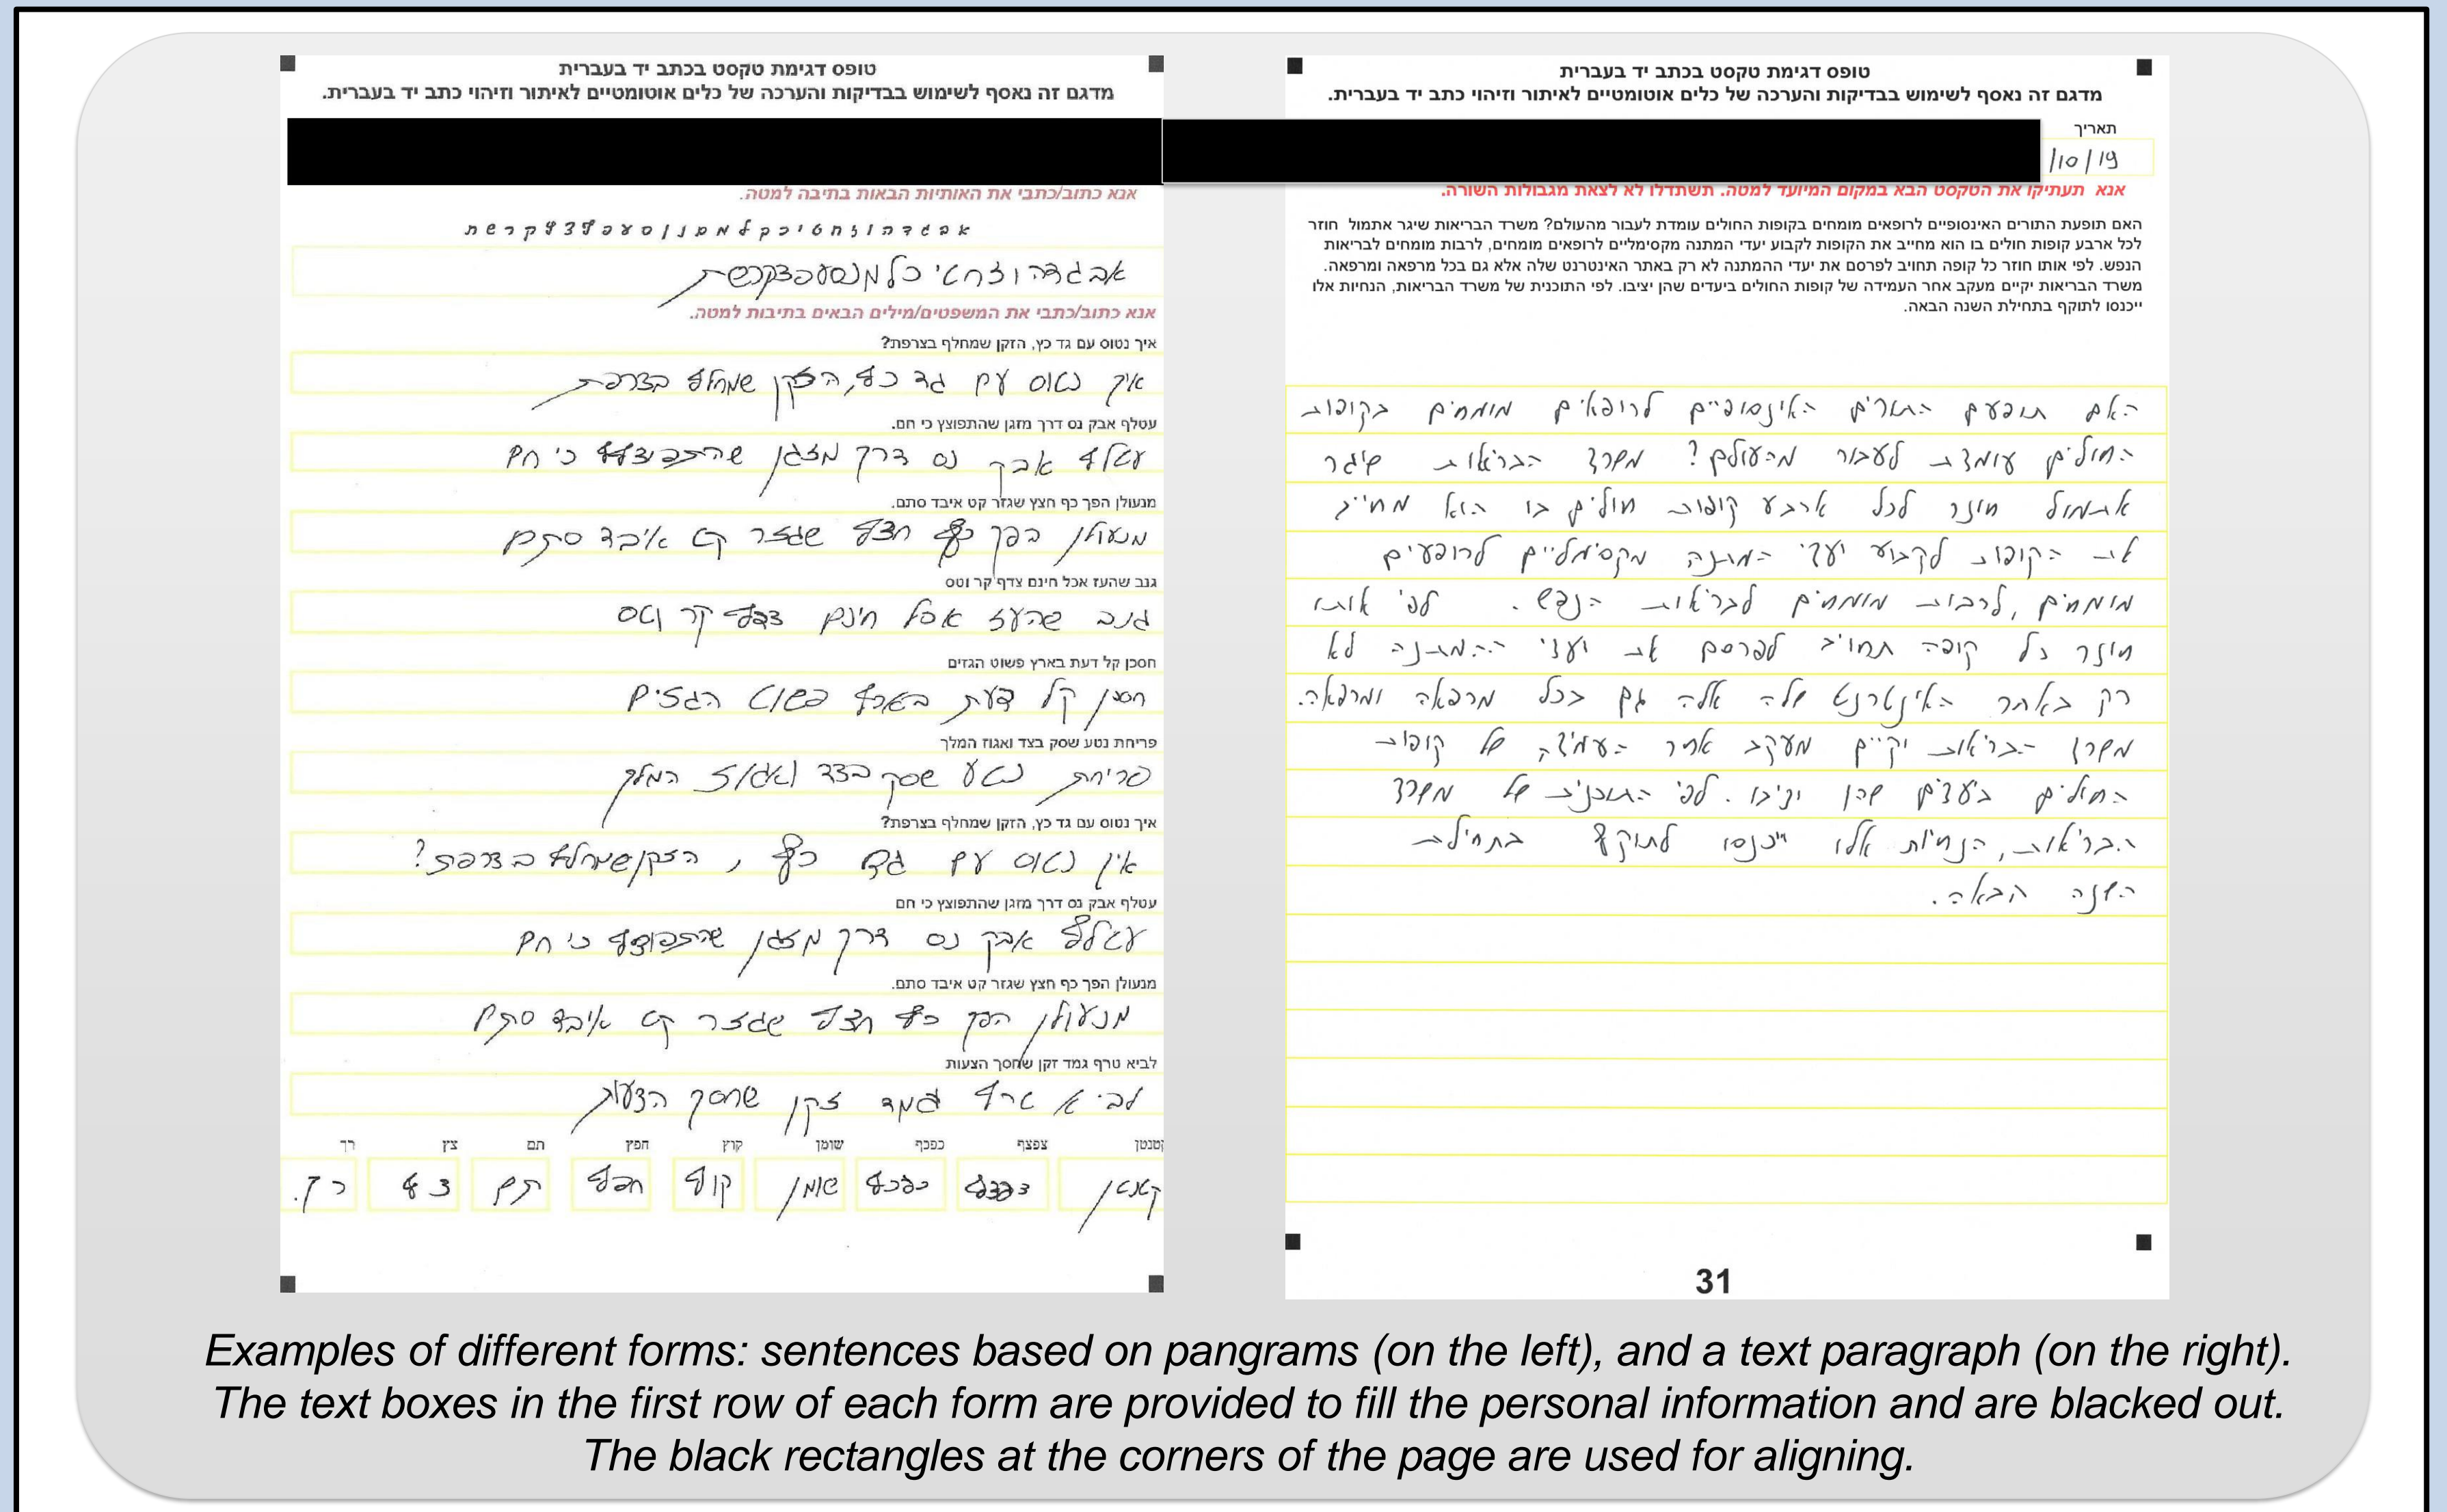 טופס דגימת טקסט בכתב יד בעברית
מדגם זה נאסף לשימוש בבדיקות והערכה של כלים אוטומטיים לאיתור וזיהוי כתב יד בעברית.
אנא כתוב/כתבי את האותיות הבאות בתיבה למטה.
א ב ג ד ה ו ז ח ט י כ ך ל מ ם נ ן ס ע פ ף צ ץ ק ר ש ת
אבגדהוזחטי כלמנסעפצקרשת
אנא כתוב/כתבי את המשפטים/מילים הבאים בתיבות למטה.
איך נטוס עם גד כץ, הזקן שמחלף בצרפת?
איך נטוס עם גד כץ, הזקן שמחלף בצרפת
עטלף אבק נס דרך מזגן שהתפוצץ כי חם.
עטלף אבק נס דרך מזגן שהתפוצץ כי חם
מנעולן הפך כף חצץ שגזר קט איבד סתם.
מנעולן הפך כף חצץ שגזר קט איבד סתם
גנב שהעז אכל חינם צדף קר וטס
גנב שהעז אכל חינם צדף קר וטס
חסכן קל דעת בארץ פשוט הגזים
חסכן קל דעת בארץ פשוט הגזים
פריחת נטע שסק בצד ואגוז המלך
פריחת נטע שסק בצד ואגוז המלך
איך נטוס עם גד כץ, הזקן שמחלף בצרפת?
אין נטוס עם גד כץ, הזקן שמחלף בצרפת?
עטלף אבק נס דרך מזגן שהתפוצץ כי חם
עטלף אבק נס דרך מזגן שהתפוצץ כי חם
מנעולן הפך כף חצץ שגזר קט איבד סתם.
מנעולן הפך כף חצץ שגזר קט איבד סתם
לביא טרף גמד זקן שחסך הצעות
לביא טרף גמד זקן שחסך הצעות
קטנטן צפצף כפכף שומן קוץ חפץ תם צץ רך
קטנטן צפצף כפכף שומן קוץ חפץ תם צץ רך.
טופס דגימת טקסט בכתב יד בעברית
מדגם זה נאסף לשימוש בבדיקות והערכה של כלים אוטומטיים לאיתור וזיהוי כתב יד בעברית.
תאריך
/10/19
אנא תעתיקו את הטקסט הבא במקום המיועד למטה. תשתדלו לא לצאת מגבולות השורה.
האם תופעת התורים האינסופיים לרופאים מומחים בקופות החולים עומדת לעבור מהעולם? משרד הבריאות שיגר אתמול חוזר
לכל ארבע קופות חולים בו הוא מחייב את הקופות לקבוע יעדי המתנה מקסימליים לרופאים מומחים, לרבות מומחים לבריאות
הנפש. לפי אותו חוזר כל קופה תחויב לפרסם את יעדי ההמתנה לא רק באתר האינטרנט שלה אלא גם בכל מרפאה ומרפאה.
משרד הבריאות יקיים מעקב אחר העמידה של קופות החולים ביעדים שהן יציבו. לפי התוכנית של משרד הבריאות, הנחיות אלו
ייכנסו לתוקף בתחילת השנה הבאה.
האם תופעם התורים האינסופיים לרופאים מומחים בקופות
החולים עומדת לעבור מהעולם? משרד הבריאות שיגר
אתמול חוזר לכל ארבע קופות חולים בו הוא מחייב
את הקופות לקבוע יעדי המתנה מקסימליים לרופעים
מומחים, לרבות מומחים לבריאות הנפש. לפי אותו
חוזר כל קופה תחויב לפרסם את יעדי ההמתנה לא
רק באתר האינטרנט שלה אלה גם בכל מרפאה ומרפאה.
משרד הבריאות יקיים מעקב אחר העמידה של קופות
החולים ביעדים שהן יציבו. לפי התוכנית של משרד
הבריאות, הנחיות אלו ייכנסו לתוקף בתחילת
השנה הבאה.
31
Examples of different forms: sentences based on pangrams (on the left), and a text paragraph (on the right).
The text boxes in the first row of each form are provided to fill the personal information and are blacked out.
The black rectangles at the corners of the page are used for aligning.